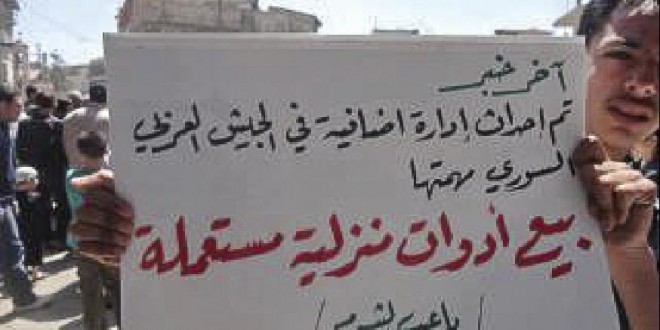 آخر خبر
تم احداث إدارة اضافية في الجيش العربي
السوري مهمتها
بيع أدوات منزلية مستعملة